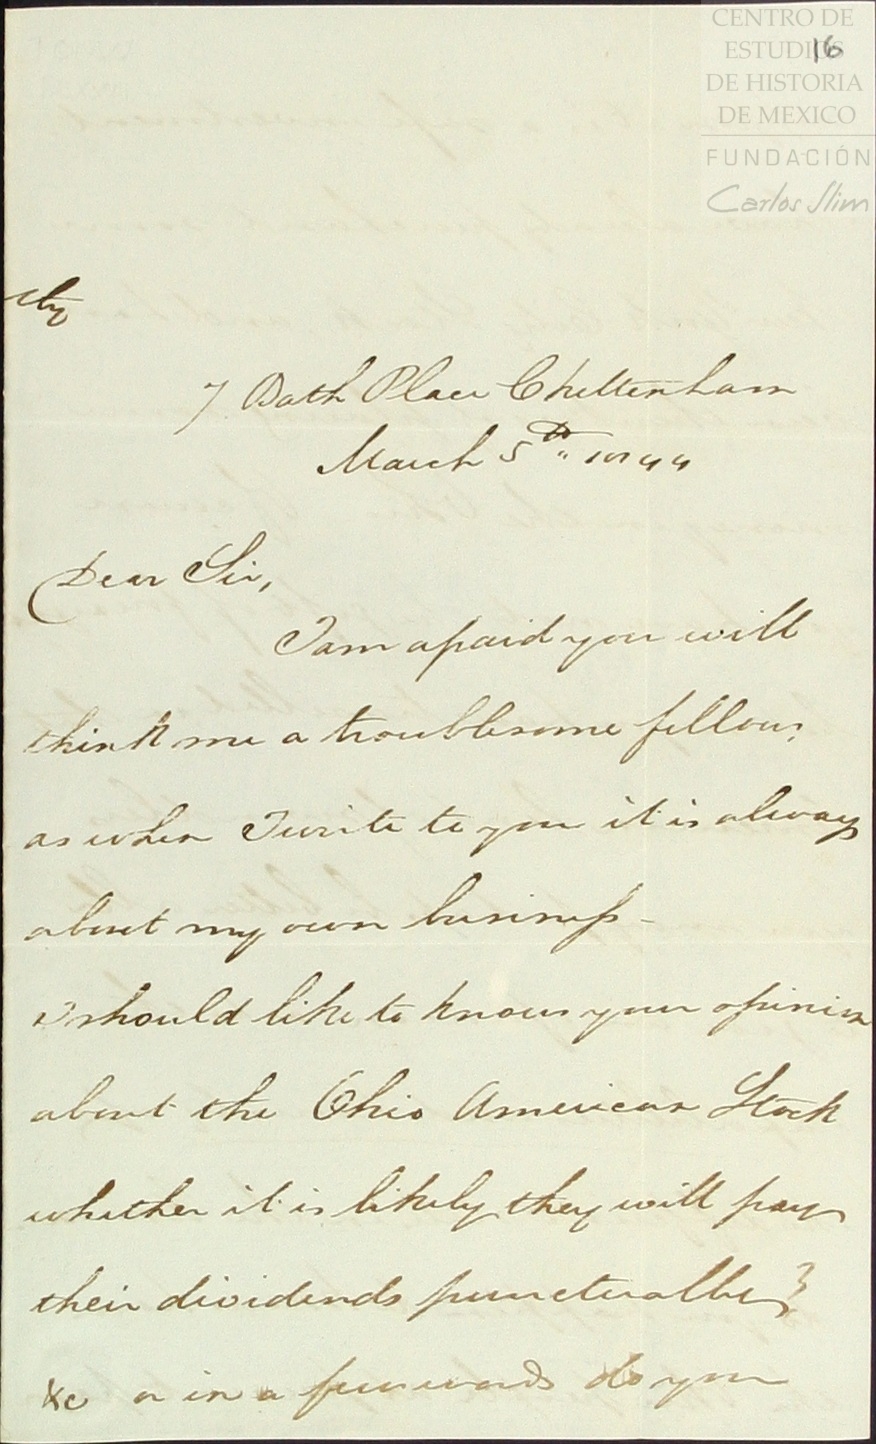 CENTRO DE
ESTUDIOS
DE HISTORIA
DE MEXICO
FUNDACIÓN
Carlos Slim
16
7 Bath Place Cheltenham
March 5th 1844
Dear Sir,
I am afraid you will
think me a troublesome fellow,
as when I write to you it is always
about my own business -
I should like to know your opinion
about the Ohio American Stock
whether it is likely they will pay
their dividends punctually?
&c or in a few words do you